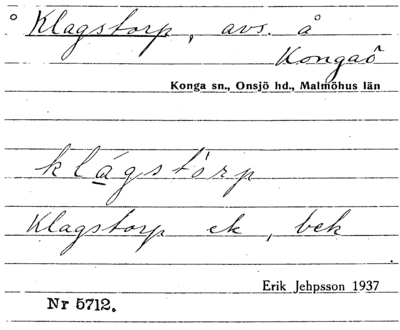 ° Klagstorp, avs. å
Kongaö
Konga sn., Onsjö hd., Malmöhus län
klágstòrp
Klagstorp ek, bek
Erik Jehpsson 1937
Nr 5712.